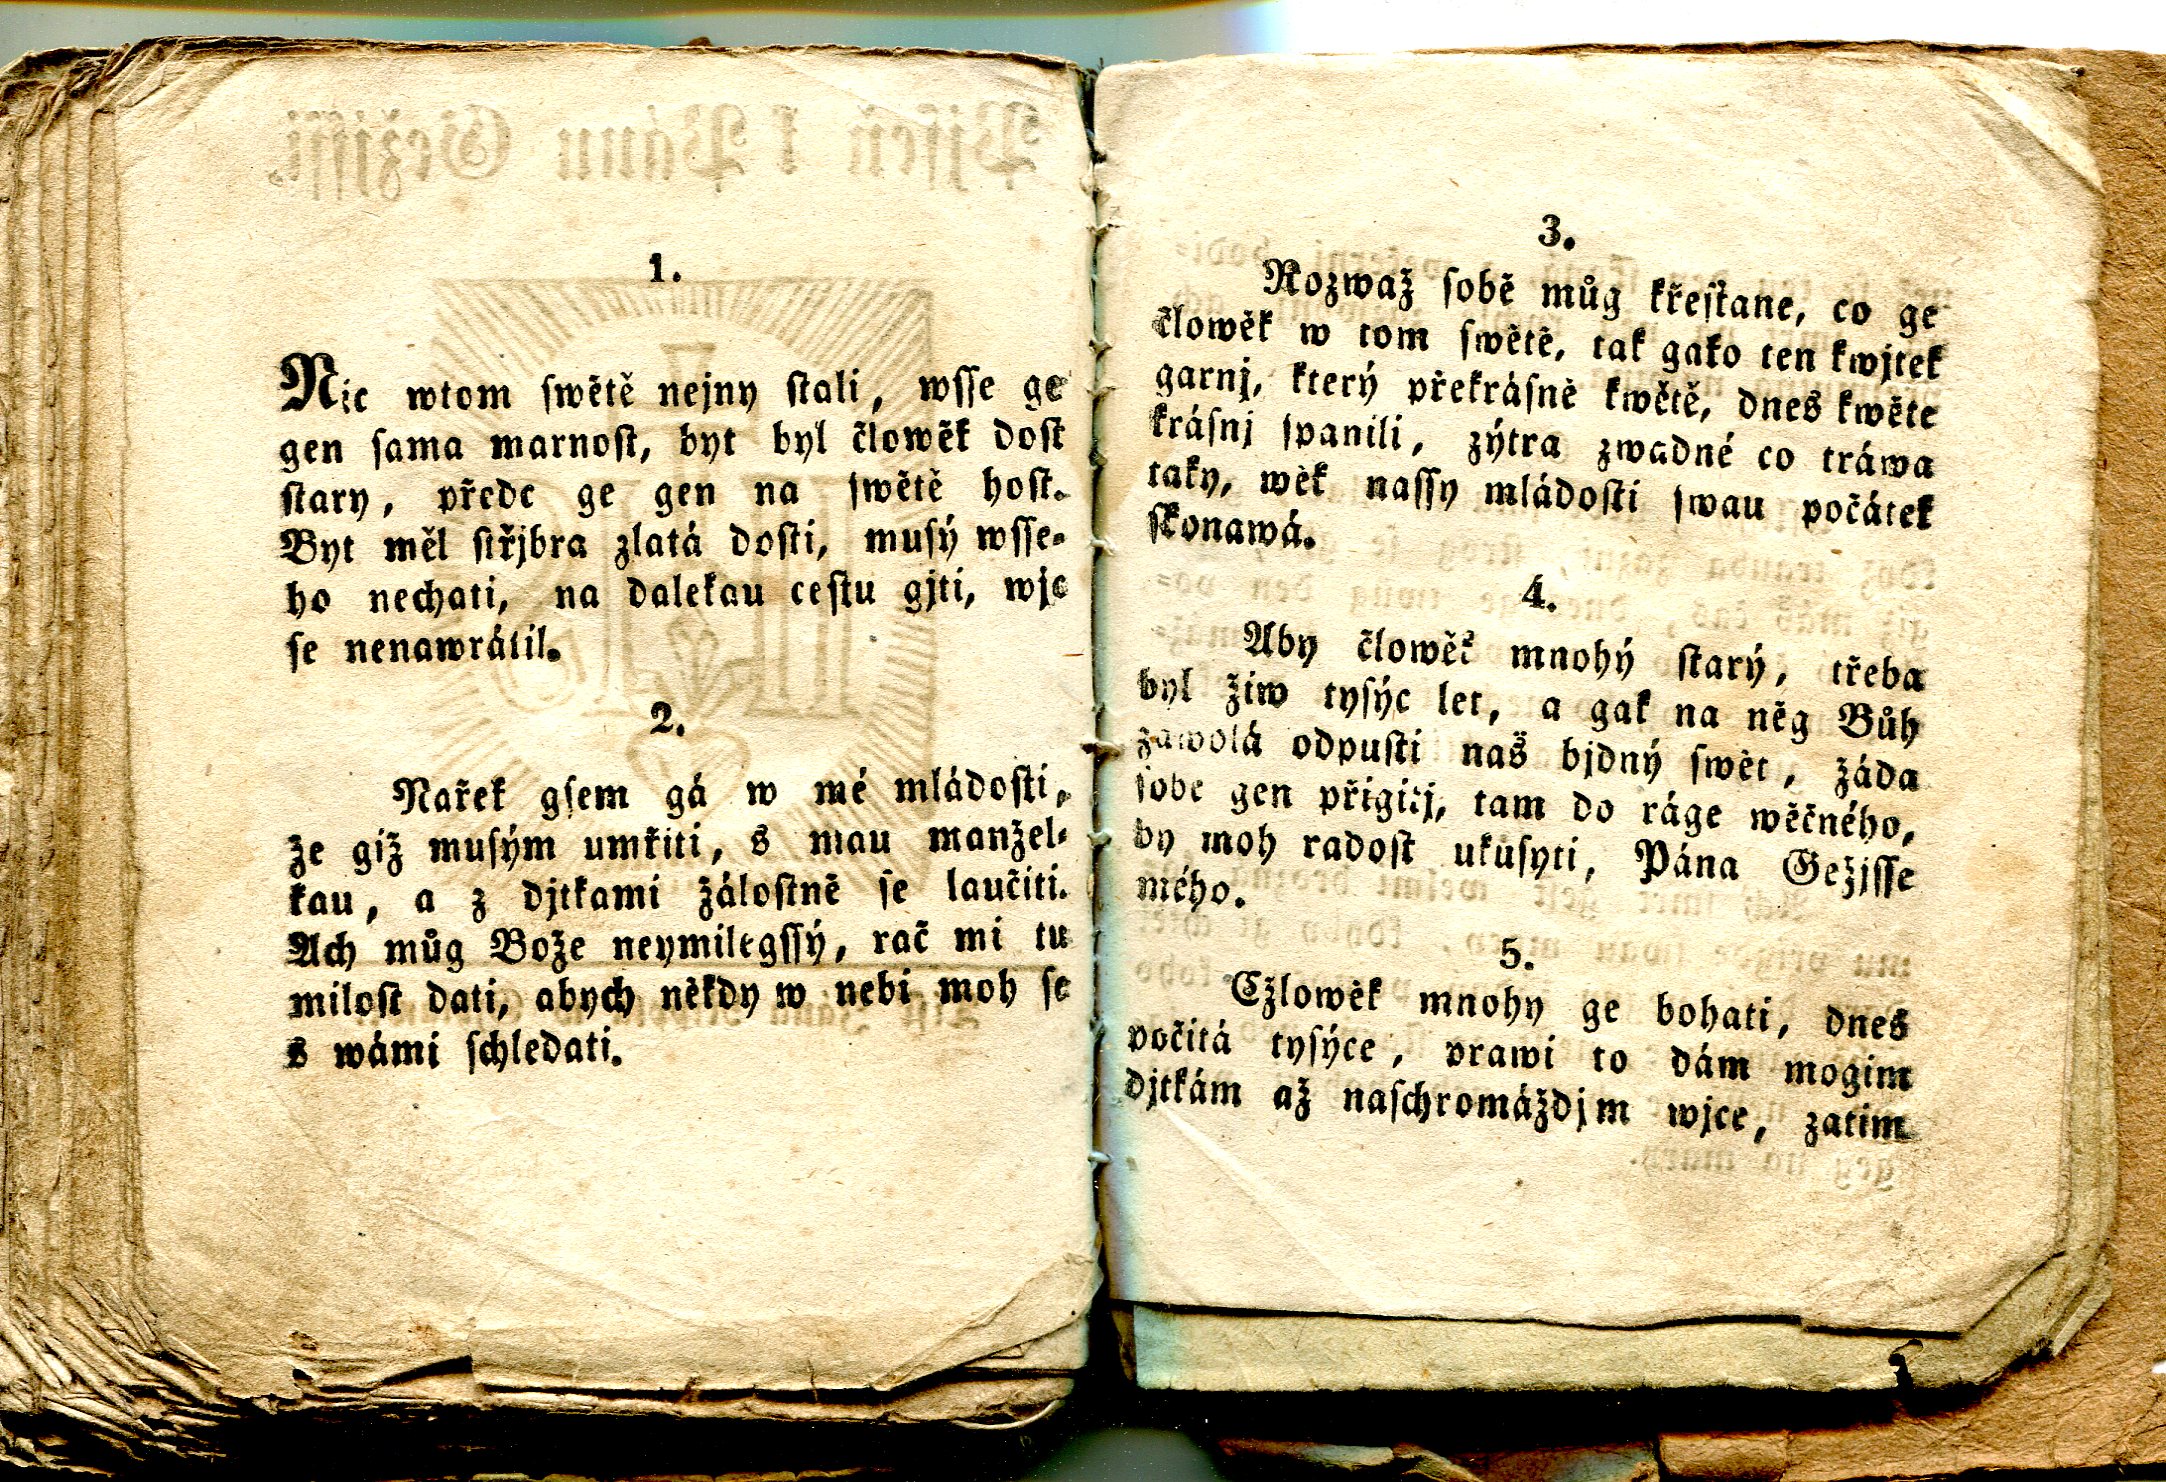 1.
Nic wtom swětě nejny stali, wsse ge
gen sama marnost, byt byl člowěk dost
stary, předc ge gen na swětě host.
Byt měl střjbra zlatá dosti, musý wsse-
ho nechati, na dalekau cestu gjti, wjc
se nenawrátil.
2.
Nařek gsem gá w mé mládosti,
že giž musým umřiti, s mau manžel-
kau, a z djtkami žálostně se laučiti.
Ach můg Bože neymilegssý, rač mi tu
milost dati, abych někdy w nebi moh se
s wámi schledati.
3.
Rozwaž sobě můg křestane, co ge
člowěk w tom swětě, tak gako ten kwjtek
garnj, který překrásně kwětě, dnes kwěte
krásnj spanili, zýtra zwadné co tráwa
taky, wěk nassy mládosti swau počátek
skonawá.
4.
Aby člowěk mnohý starý, třeba
byl žiw tysýc let, a gak na něg Bůh
zawolá odpusti naš bjdný swět, žáda
sobe gen přigitj, tam do ráge wěčného,
by moh radost ukusyti, Pána Gežjsse
mého.
5.
Cžlowěk mnohy ge bohati, dnes
počitá tysýce, prawi to dám mogim
djtkám až naschromáždjm wjce, zatim